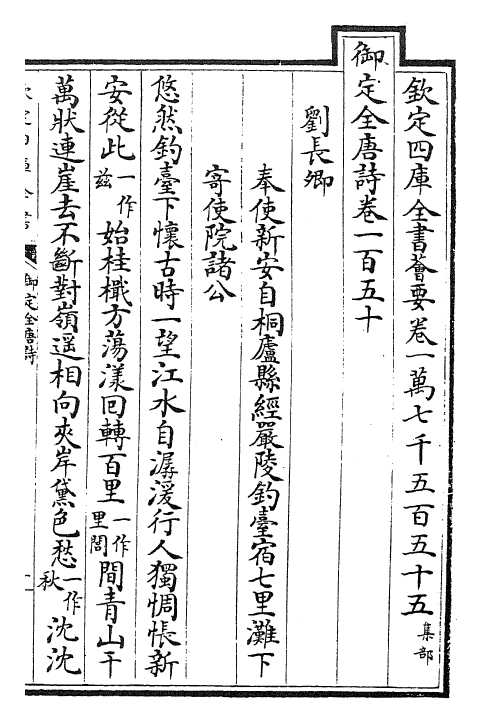 欽定四庫全書薈要卷一萬七千五百五十五集部
御定全唐詩卷一百五十
劉長卿
奉使新安自桐廬縣經嚴陵釣臺宿七里灘下
寄使院諸公
悠然釣臺下懷古時一望江水自潺湲行人獨惆悵新
安從此一作兹始桂檝方蕩漾回轉百里一作里閭間青山千
萬狀連崖去不斷對嶺遥相向夾岸黛色愁一作秋沈沈
御定全唐詩